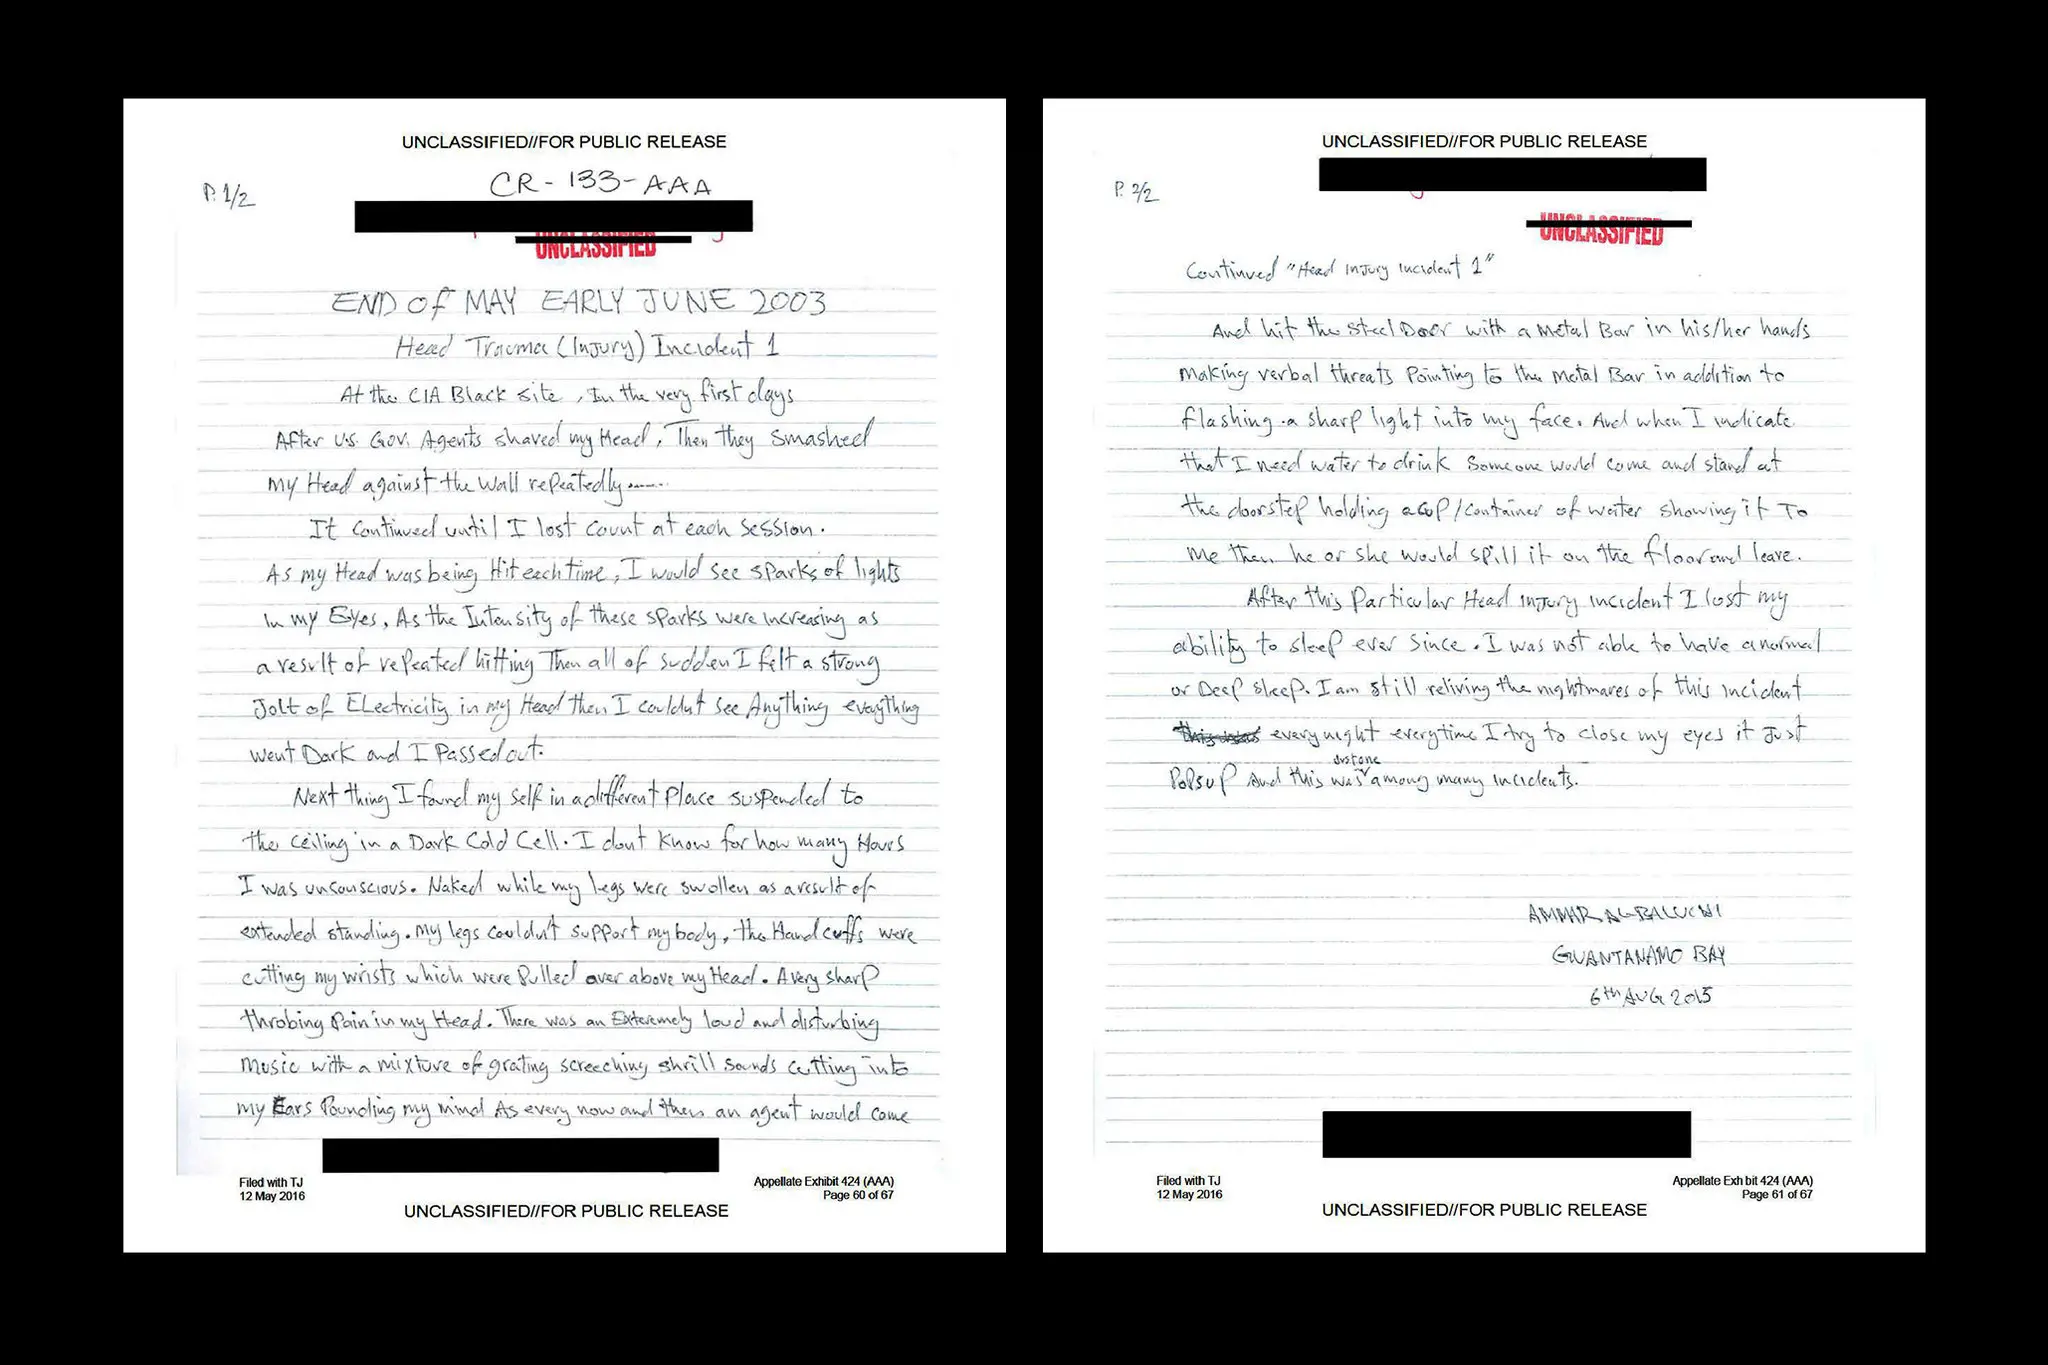 UNCLASSIFIED//FOR PUBLIC RELEASE
CR-133-AAA
P. 1/2
UNCLASSIFIED
END Of MAY EARLY JUNE 2003
Head Trauma (Injury) Incident 1
At the CIA Black site, In the very first days
After U.S. Gov. Agents shaved my Head, Then they smashed
my Head against the Wall repeatedly......
It continued until I lost count at each session.
As my Head was being Hit each time, I would see sparks of lights
In my Eyes, As the Intensity of these sparks were increasing as
a result of repeated hitting Then all of sudden I felt a strong
Jolt of Electricity in my Head then I couldnt see Anything everything
went Dark and I Passed out.
Next thing I found my self in a different Place suspended to
the ceiling in a Dark Cold Cell. I dont know for how many Hours
I was unsonscious. Naked while my legs were swollen as a result of
extended standing. my legs couldnt support my body, the Hand cuffs were
cutting my wrists which were Pulled over above my Head. A very sharp
throbing Pain in my Head. There was an Exteremely loud and disturbing
music with a mixture of grating screeching shrill sounds cutting into
my Ears Pounding my mind As every now and then an agent would come
Filed with TJ
12 May 2016
Appellate Exhibit 424 (AAA)
Page 60 of 67
UNCLASSIFIED//FOR PUBLIC RELEASE
UNCLASSIFIED//FOR PUBLIC RELEASE
P. 2/2
UNCLASSIFIED
Continued "Head Injury Incident 1"
And hit the Steel Door with a Metal Bar in his/her hands
making verbal threats Pointing to the Metal Bar in addition to
flashing a sharp light into my face. And when I indicate
that I need water to drink someone would come and stand at
the doorstep holding a cup/container of water showing it To
me then he or she would spill it on the floor and leave.
After this Particular Head Injury incident I lost my
ability to sleep ever since. I was not able to have a normal
or Deep sleep. I am still reliving the nightmares of this incident
every night everytime I try to close my eyes it just
PoPs uP And this was just one among many incidents.
AMMAR ALBALUCHI
GUANTANAMO BAY
6th AUG 2015
Filed with TJ
12 May 2016
Appellate Exh bit 424 (AAA)
Page 61 of 67
UNCLASSIFIED//FOR PUBLIC RELEASE